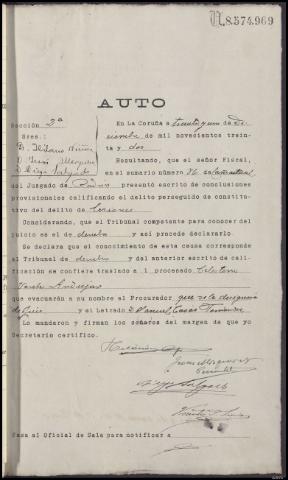 N.8.574.969
AUTO
Sección 2ª
En La Coruña a treinta y uno de Di
Sres:
ciembre de mil novecientos trein-
ta y dos
Resultando, que el señor Fiscal,
en el sumario número 76
del Juzgado de presentó escrito de conclusiones
provisionales calificando el delito perseguido de constitu-
tivo del delito de lesiones
Considerando, que el Tribunal competente para conocer del
juicio es el de derecho y así procede declararlo.
Se declara que el conocimiento de esta causa corresponde
al Tribunal de derecho y del anterior escrito de cali-
ficación se confiere traslado a l procesado Celestino
que evacuarán a su nombre el Procurador que se le designe
de oficio y el Letrado D. Manuel Casas Fernández
Lo mandaron y firman los señores del margen de que yo
Secretario certifico.
Pasa al Oficial de Sala para notificar a